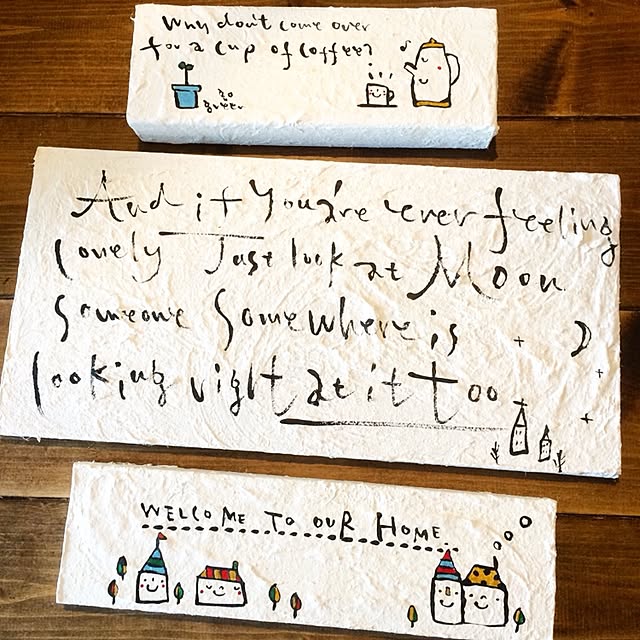 Why don't come over
for a cup of coffee?
And if You're ever feeling
lonely Just look at Moon
Someone Somewhere is
looking right at it too
WELCOME TO OUR HOME